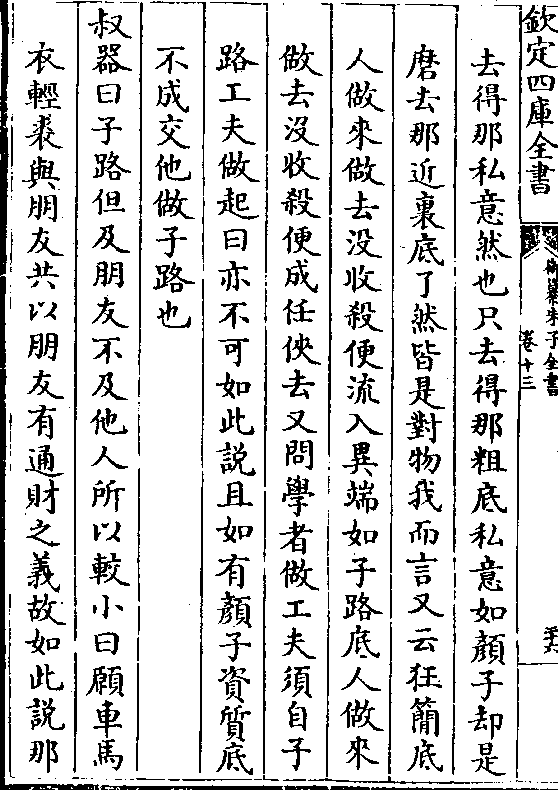 欽定四庫全書
御纂朱子全書
卷十三
去得那私意然也只去得那粗底私意如顔子却是
磨去那近裏底了然皆是對物我而言又云狂簡底
人做來做去没收殺便流入異端如子路底人做來
做去沒收殺便成任俠去又問學者做工夫須自子
路工夫做起曰亦不可如此説且如有顔子資質底
不成交他做子路也
叔器曰子路但及朋友不及他人所以較小曰願車馬
衣輕裘與朋友共以朋友有通財之義故如此説那